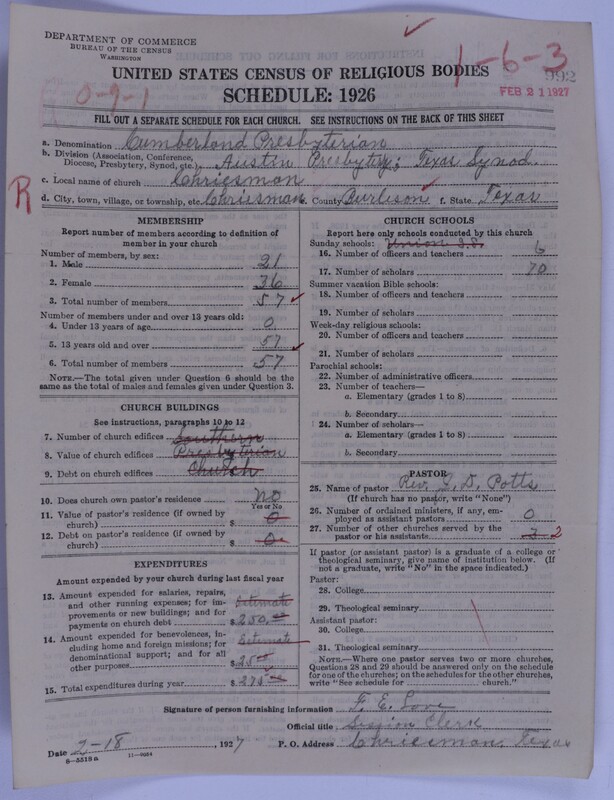 DEPARTMENT OF COMMERCE
BUREAU OF THE CENSUS
WASHINGTON
1-6-3
992
FEB 21 1927
UNITED STATES CENSUS OF RELIGIOUS BODIES
SCHEDULE: 1926
0-9-1
FILL OUT A SEPARATE SCHEDULE FOR EACH CHURCH. SEE INSTRUCTIONS ON THE BACK OF THIS SHEET
a. Denomination Cumberland Presbyterian
b. Division (Association, Conference, Diocese, Presbytery, Synod, etc.) Austin Presbytery; Texas Synod.
c. Local name of church Chriesman
R
d. City, town, village, or township, etc. Chriesman County Burleson f. State Texas
MEMBERSHIP
Report number of members according to definition of
member in your church
Number of members, by sex:
1. Male 21
2. Female 36
3. Total number of members 57
Number of members under and over 13 years old:
4. Under 13 years of age 0
5. 13 years old and over 57
6. Total number of members 57
NOTE.—The total given under Question 6 should be the
same as the total of males and females given under Question 3.
CHURCH BUILDINGS
See instructions, paragraphs 10 to 12
7. Number of church edifices Southern
8. Value of church edifices Presbyterian
9. Debt on church edifices Church
10. Does church own pastor's residence no
Yes or No
11. Value of pastor's residence (if owned by
church) $ 0
12. Debt on pastor's residence (if owned by
church) $ 0
EXPENDITURES
Amount expended by your church during last fiscal year
13. Amount expended for salaries, repairs,
and other running expenses; for im- Estimate
provements or new buildings; and for
payments on church debt $ 250.00
14. Amount expended for benevolences, in-
cluding home and foreign missions; for Estimate
denominational support; and for all
other purposes $ 25.00
15. Total expenditures during year $ 275.00
CHURCH SCHOOLS
Report here only schools conducted by this church
Sunday schools: Union S.S.
16. Number of officers and teachers 6
17. Number of scholars 70
Summer vacation Bible schools:
18. Number of officers and teachers
19. Number of scholars
Week-day religious schools:
20. Number of officers and teachers
21. Number of scholars
Parochial schools:
22. Number of administrative officers
23. Number of teachers—
a. Elementary (grades 1 to 8)
b. Secondary
24. Number of scholars—
a. Elementary (grades 1 to 8)
b. Secondary
PASTOR
25. Name of pastor Rev. D. Potts
(If church has no pastor, write "None")
26. Number of ordained ministers, if any, em-
ployed as assistant pastors 0
27. Number of other churches served by the
pastor or his assistants 3 2
If pastor (or assistant pastor) is a graduate of a college or
theological seminary, give name of institution below. (If
not a graduate, write "No" in the space indicated.)
Pastor:
28. College
29. Theological seminary
Assistant pastor:
30. College
31. Theological seminary
NOTE.—Where one pastor serves two or more churches,
Questions 28 and 29 should be answered only on the schedule
for one of the churches; on the schedules for the other churches,
write "See schedule for church."
Signature of person furnishing information F. E. Love
Official title Session Clerk
Date 2-18, 1927 P. O. Address Chriesman, Texas
8-5518a 11-9084